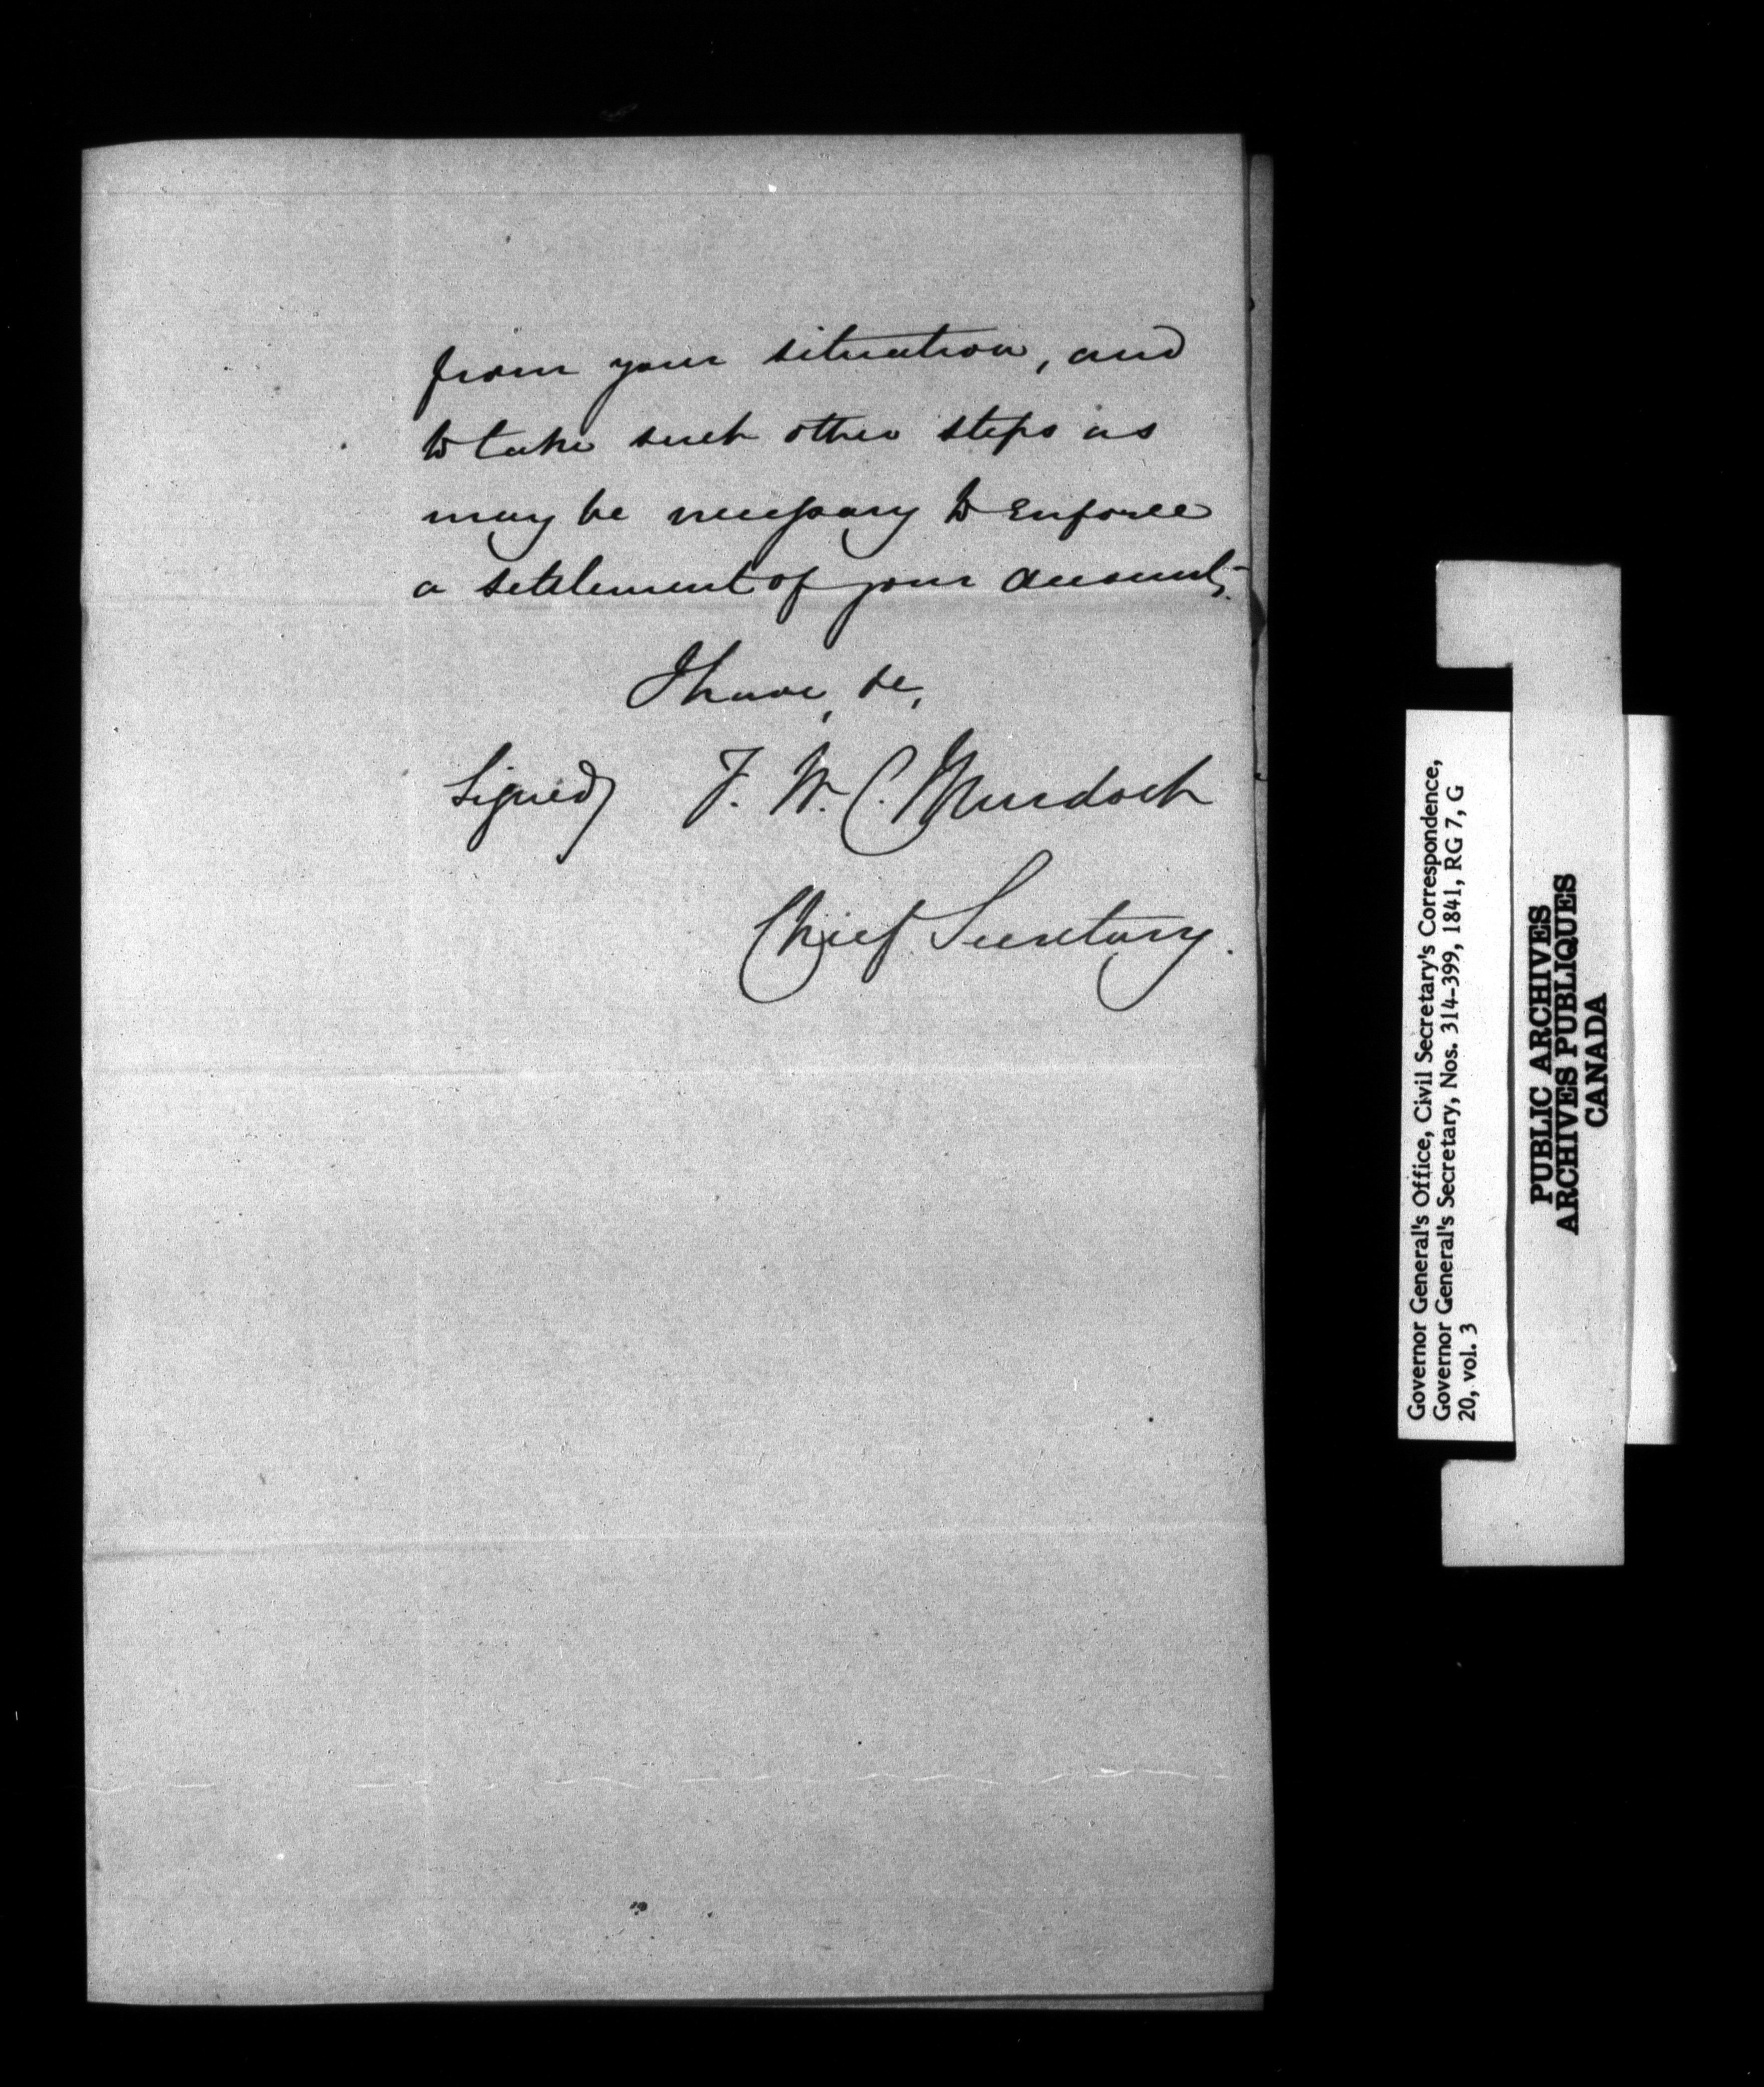 from your situation, and
to take such other steps as
may be necessary to enforce
a settlement of your accounts.
I have, &c,
Signed) T. W. C. Murdoch
Chief Secretary.
Governor General's Office, Civil Secretary's Correspondence,
Governor General's Secretary, Nos. 314-399, 1841, RG 7, G
20, vol. 3
PUBLIC ARCHIVES
ARCHIVES PUBLIQUES
CANADA